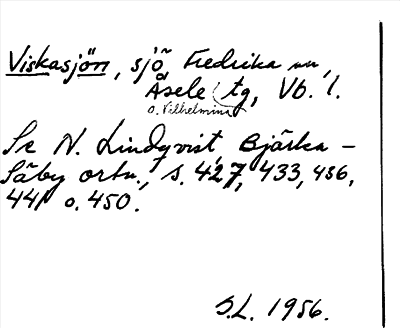 Viskasjön, sjö Fredrika sn,
Åsele tg, Vb. l.
o. Vilhelmina
Se N. Lindqvist, Bjärka –
Säby ortn., s. 427, 433, 436,
441 o. 450.
S.L. 1956.